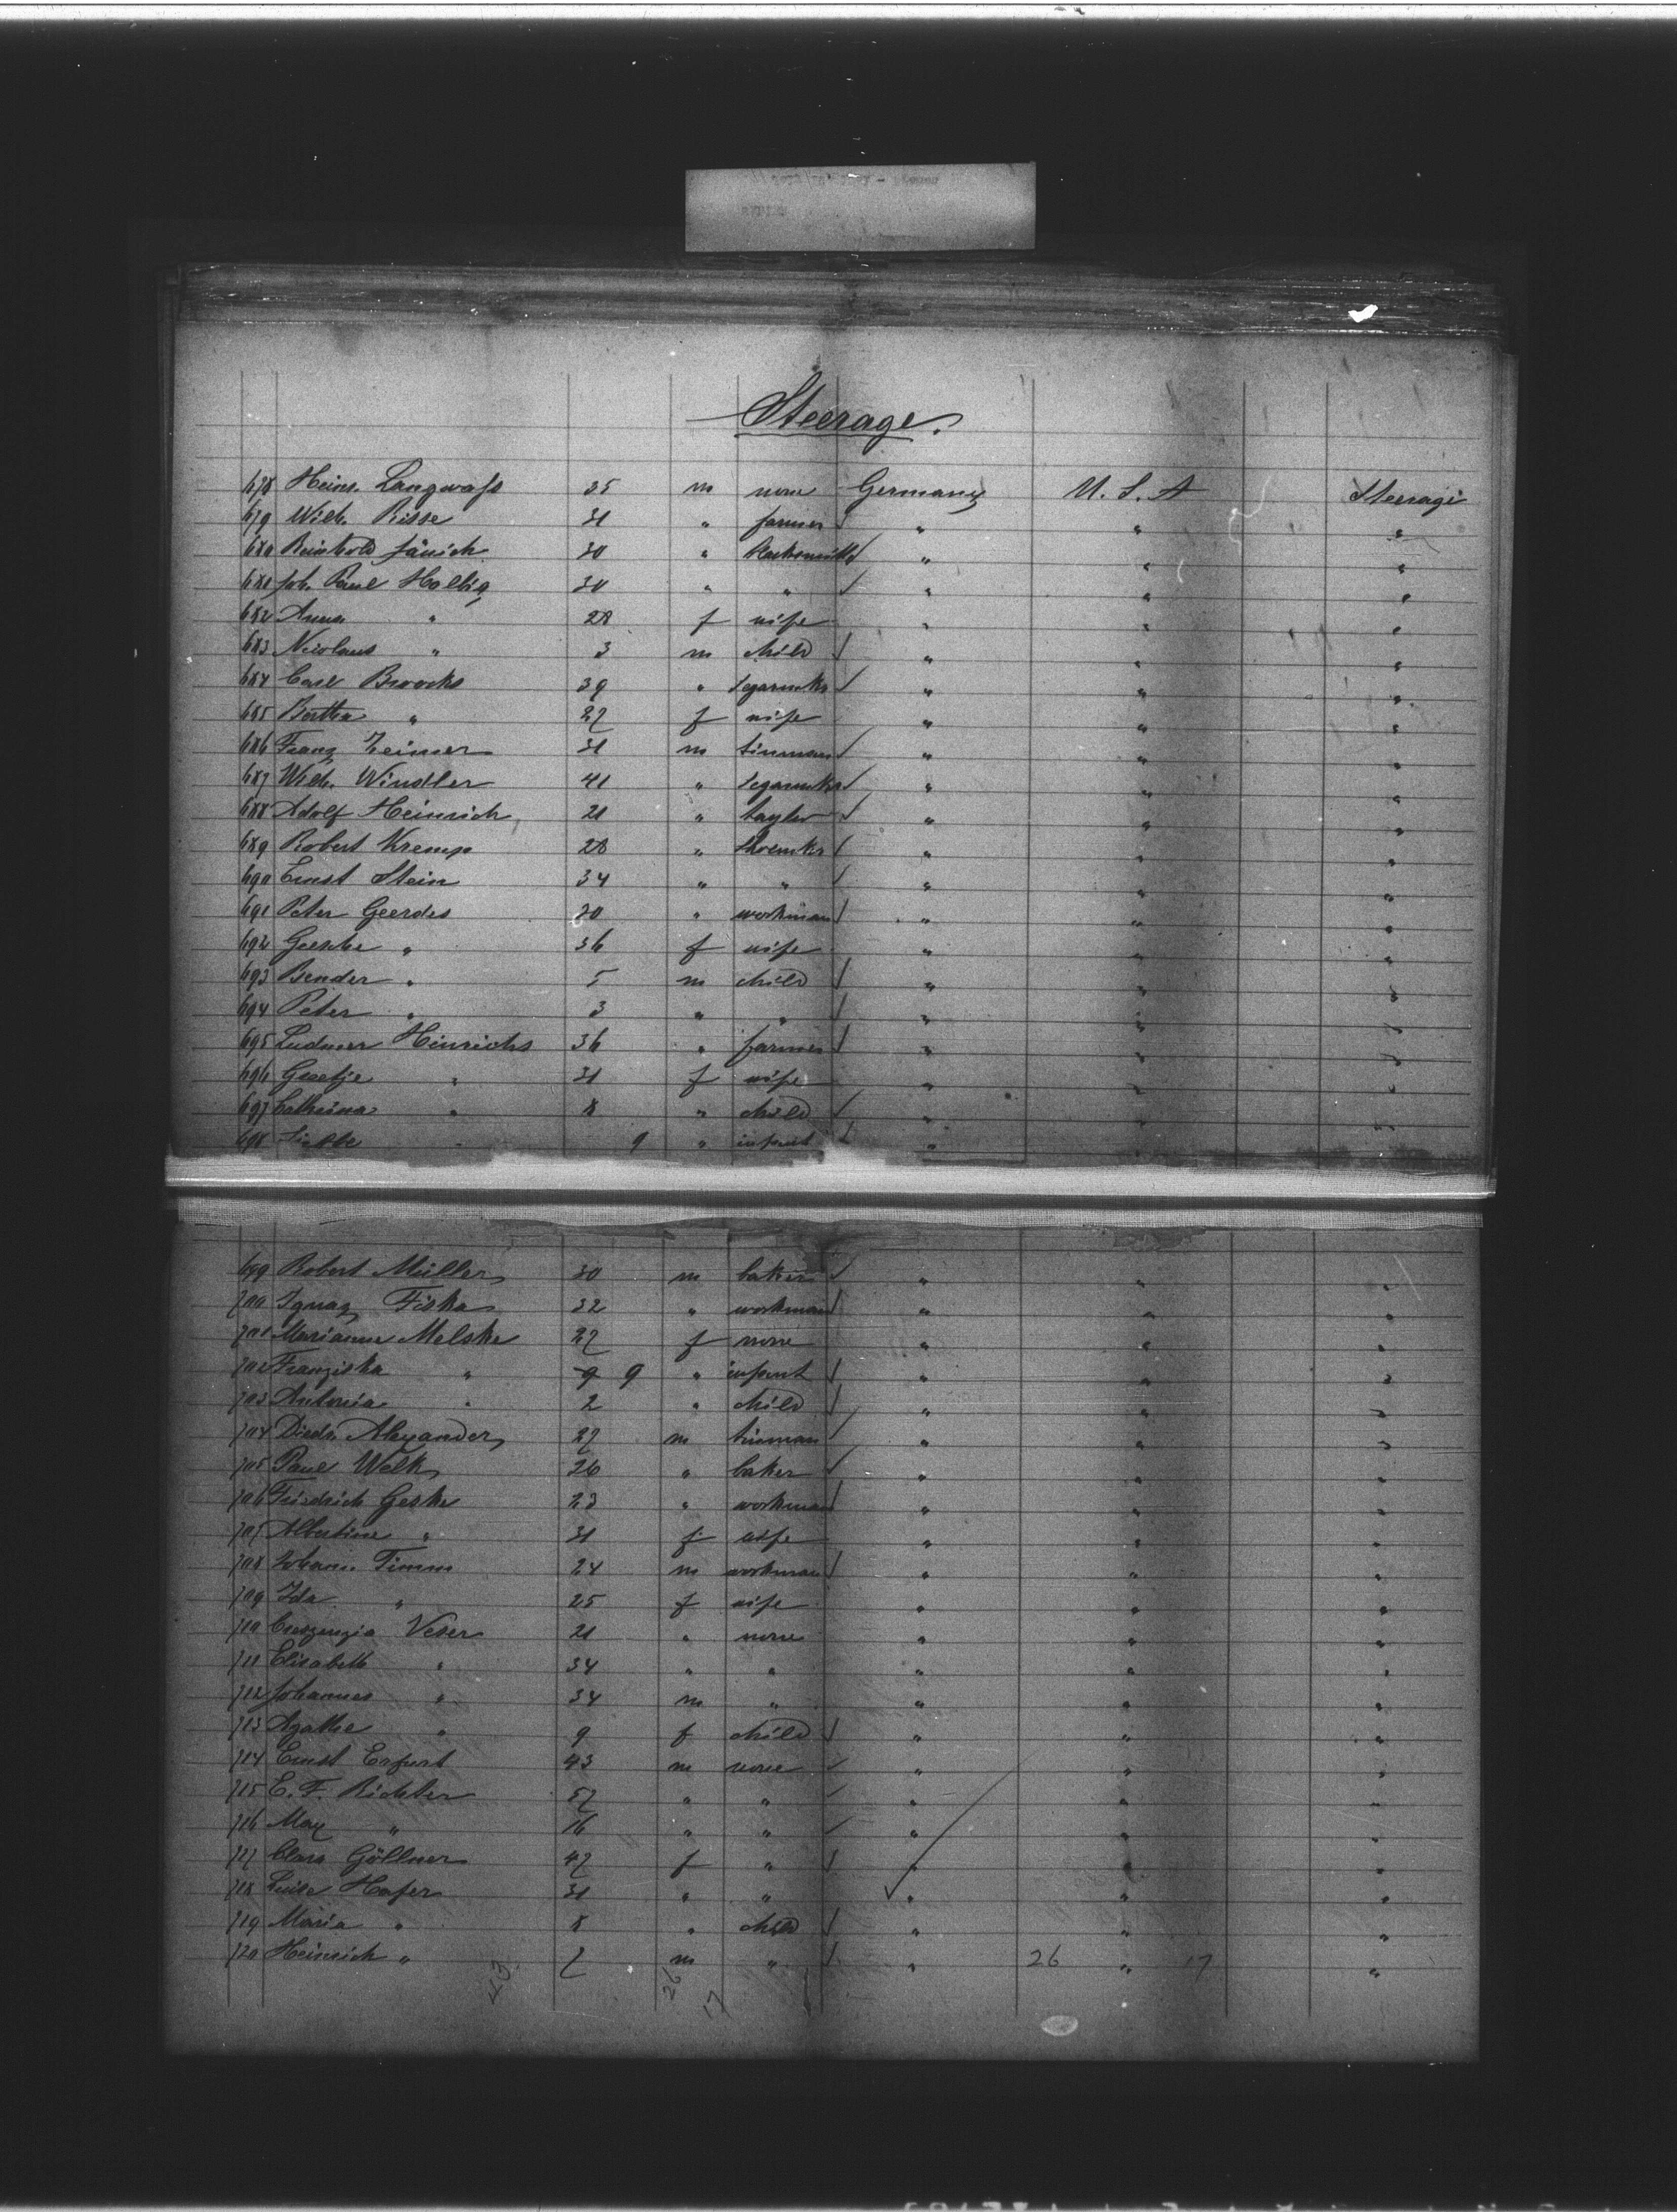 Steerage.
678 Heinr. Langwass 35 m none Germany U. S. A Steerage
679 Wilh. Risse 31 " farmer " " "
680 Reinhold Jänich 30 " blacksmith " " "
681 Joh. Paul Hallig 30 " " " " "
682 Anna " 28 f wife " " "
683 Nicolaus " 3 m child " " "
684 Carl Broocks 39 " segarmkr " " "
685 Bertha " 27 f wife " " "
686 Franz Zeimer 31 m tinman " " "
687 Wilh. Windler 41 " segarmkr " " "
688 Adolf Heinrich 21 " taylor " " "
689 Robert Kremp 28 " shoemkr " " "
690 Ernst Stein 34 " " " " "
691 Peter Geerdes 30 " workman " " "
692 Geeske " 36 f wife " " "
693 Bender " 5 m child " " "
694 Peter " 3 " " " " "
695 Hinrichs 36 " farmer " " "
696 Geetje " 31 f wife " " "
697 Catharina " 8 " child " " "
698 " 9 " infant " "
699 Robert Müller 30 m baker " " "
700 Ignaz Fiska 32 " workman " " "
701 Marianne Melske 27 f none " " "
702 Franziska " 9 9 " infant " " "
703 Antonia " 2 " child " " "
704 Diedr. Alexander 27 m tinman " " "
705 Paul Welk 26 " baker " " "
706 Friedrich Geske 23 " workman " " "
707 Albertine " 31 f wife " " "
708 Johann Timm 24 m workman " " "
709 Ida " 25 f wife " " "
710 Creszenzia Veser 21 " none " " "
711 Elisabeth " 34 " " " " "
712 Johannes " 34 m " " " "
713 Agathe " 9 f child " " "
714 Ernst Erfurt 43 m none " " "
715 E. F. Richter 57 " " " " "
716 Max " 16 " " " " "
717 Clara Göllner 47 f " " " "
718 Luise Hafer 31 " " " " "
719 Maria " 8 " child " " "
720 Heinrich " 7 m " " 26 " 17 "
43 26 17